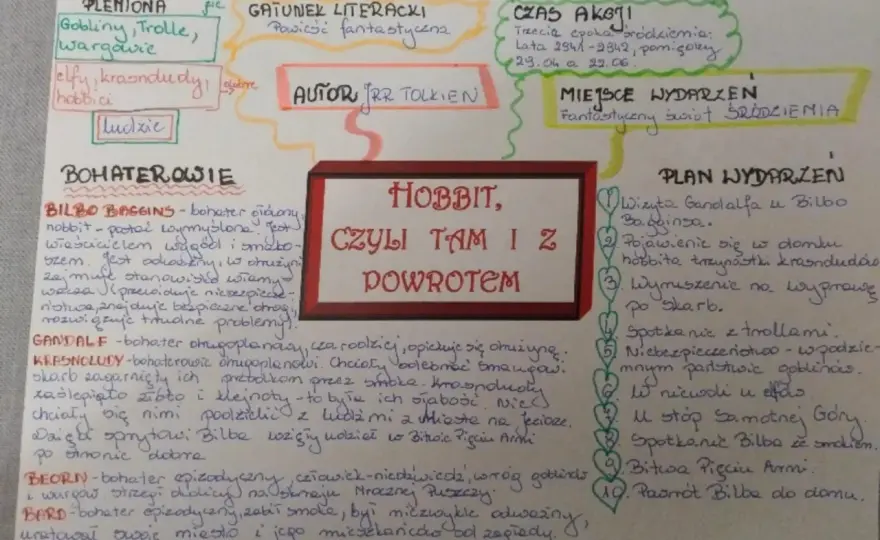 PLEMIONA
Gobliny, Trolle,
Wargowie
złe
elfy, krasnoludy,
hobbici
dobre
ludzie
GATUNEK LITERACKI
Powieść fantastyczna
CZAS AKCJI
Trzecia epoka śródziemia:
Lata 2941-2942, pomiędzy
29.04 a 22.06.
AUTOR JRR TOLKIEN
MIEJSCE WYDARZEŃ
Fantastyczny świat ŚRÓDZIEMIA
HOBBIT,
CZYLI TAM I Z
POWROTEM
BOHATEROWIE
BILBO BAGGINS - bohater główny,
hobbit - postać wymyślona. Jest
właścicielem wygód i smako-
szem. Jest odważny, w drużynie
zajmuje stanowisko włamy-
wacza (przewiduje niebezpiecze-
ństwa, znajduje bezpieczne drogi,
rozwiązuje trudne problemy).
GANDALF - bohater drugoplanowy, czarodziej, opiekuje się drużyną.
KRASNOLUDY - bohaterowie drugoplanowi. Chciały odebrać Smaugowi
skarb zagarnięty ich przodkom przez smoka. Krasnoludy
zaślepiało złoto i klejnoty - to była ich słabość. Nie
chciały się nimi podzielić z ludźmi z Miasta na Jeziorze.
Dzięki sprytowi Bilba wzięły udział w Bitwie Pięciu Armii
po stronie dobra
BEORN - bohater epizodyczny, człowiek-niedźwiedź, wróg goblinów
i wargów strzegł okolicy na skraju Mrocznej Puszczy.
BARD - bohater epizodyczny, zabił smoka, był niezwykle odważny,
uratował swoje miasto i jego mieszkańców od zagłady.
PLAN WYDARZEŃ
1 Wizyta Gandalfa u Bilbo
Bagginsa.
2 Pojawienie się w domku
hobbita trzynastki krasnoludów
3. Wyruszenie na wyprawę
po skarb.
4. Spotkanie z trollami.
5. Niebezpieczeństwo - w podzie-
mnym państwie goblinów.
6 W niewoli u elfów
7 U stóp Samotnej Góry.
8 Spotkanie Bilba ze smokiem.
9. Bitwa Pięciu Armii.
10. Powrót Bilba do domu.